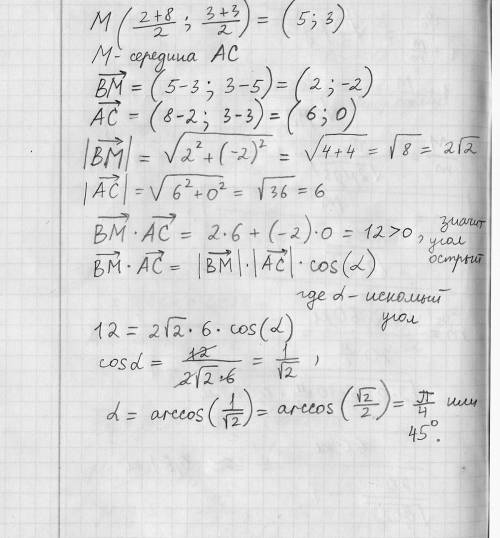 M(2+8/2 ; 3+3/2) = (5; 3)
M - середина AC
BM = (5-3 ; 3-5) = (2 ; -2)
AC = (8-2 ; 3-3) = (6 ; 0)
|BM| = √2²+(-2)² = √4+4 = √8 = 2√2
|AC| = √6²+0² = √36 = 6
BM · AC = 2·6 + (-2)·0 = 12 >0, значит
угол
острый
BM · AC = |BM|·|AC|·cos(α)
где α - искомый
угол
12 = 2√2 · 6 · cos(α)
cosα = 12/2√2·6 = 1/√2 ,
α = arccos(1/√2) = arccos(√2/2) = π/4 или
45°.